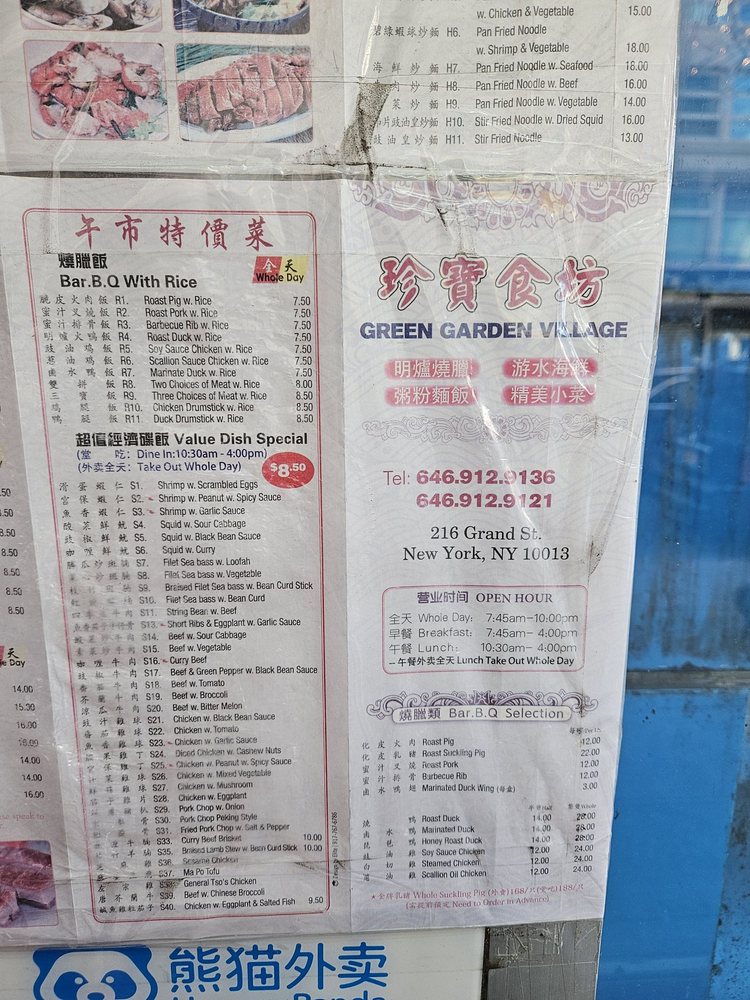 w. Chicken & Vegetable 15.00
H6. Pan Fried Noodle
w. Shrimp & Vegetable 18.00
海鮮炒麵 H7. Pan Fried Noodle w. Seafood 18.00
肉炒麵 H8. Pan Fried Noodle w. Beef 16.00
菜炒麵 H9. Pan Fried Noodle w. Vegetable 14.00
片豉油皇炒麵 H10. Stir Fried Noodle w. Dried Squid 16.00
豉油皇炒麵 H11. Stir Fried Noodle 13.00
午市特價菜
燒臘飯
Bar.B.Q With Rice
全天
Whole Day
脆皮火肉飯 R1. Roast Pig w. Rice 7.50
蜜汁叉燒飯 R2. Roast Pork w. Rice 7.50
蜜汁排骨飯 R3. Barbecue Rib w. Rice 7.50
明爐火鴨飯 R4. Roast Duck w. Rice 7.50
豉油鸡飯 R5. Soy Sauce Chicken w. Rice 7.50
葱油鸡飯 R6. Scallion Sauce Chicken w. Rice 7.50
鹵水鴨飯 R7. Marinate Duck w. Rice 7.50
雙拼飯 R8. Two Choices of Meat w. Rice 8.00
三寶飯 R9. Three Choices of Meat w. Rice 8.50
鸡腿飯 R10. Chicken Drumstick w. Rice 8.50
鴨腿飯 R11. Duck Drumstick w. Rice 8.50
超值經濟碟飯 Value Dish Special
(堂吃: Dine In:10:30am - 4:00pm)
(外卖全天: Take Out Whole Day)
$8.50
滑蛋蝦仁 S1. Shrimp w. Scrambled Eggs
宮保蝦仁 S2. Shrimp w. Peanut w. Spicy Sauce
魚香蝦仁 S3. Shrimp w. Garlic Sauce
酸菜鮮魷 S4. Squid w. Sour Cabbage
豉椒鮮魷 S5. Squid w. Black Bean Sauce
咖喱鮮魷 S6. Squid w. Curry
S7. Filet Sea bass w. Loofah
S8. Filet Sea bass w. Vegetable
S9. Braised Filet Sea bass w. Bean Curd Stick
S10. Filet Sea bass w. Bean Curd
S11. String Bean w. Beef
S13. Short Ribs & Eggplant w. Garlic Sauce
S14. Beef w. Sour Cabbage
S15. Beef w. Vegetable
咖喱牛肉 S16. Curry Beef
豉椒牛肉 S17. Beef & Green Pepper w. Black Bean Sauce
番茄牛肉 S18. Beef w. Tomato
芥蘭牛肉 S19. Beef w. Broccoli
涼瓜牛肉 S20. Beef w. Bitter Melon
豉汁雞球 S21. Chicken w. Black Bean Sauce
番茄雞球 S22. Chicken w. Tomato
魚香雞球 S23. Chicken w. Garlic Sauce
腰果雞丁 S24. Diced Chicken w. Cashew Nuts
宮保雞丁 S25. Chicken w. Peanut w. Spicy Sauce
什菜雞球 S26. Chicken w. Mixed Vegetable
鮮菇雞球 S27. Chicken w. Mushroom
茄子雞片 S28. Chicken w. Eggplant
S29. Pork Chop w. Onion
S30. Pork Chop Peking Style
S31. Fried Pork Chop w. Salt & Pepper
S33. Curry Beef Brisket 10.00
S35. Braised Lamb Stew w. Bean Curd Stick 10.00
S36. Sesame Chicken
S37. Ma Po Tofu
S38. General Tso's Chicken
唐芥蘭牛 S39. Beef w. Chinese Broccoli
鹹魚雞粒茄子 S40. Chicken w. Eggplant & Salted Fish 9.50
珍寶食坊
GREEN GARDEN VILLAGE
明爐燒臘 游水海鮮
粥粉麵飯 精美小菜
Tel: 646.912.9136
646.912.9121
216 Grand St.
New York, NY 10013
营业时间 OPEN HOUR
全天 Whole Day: 7:45am-10:00pm
早餐 Breakfast: 7:45am- 4:00pm
午餐 Lunch: 10:30am- 4:00pm
--午餐外卖全天 Lunch Take Out Whole Day
燒臘類 Bar.B.Q Selection
化皮火肉 Roast Pig 12.00
化皮乳豬 Roast Suckling Pig 22.00
蜜汁叉燒 Roast Pork 12.00
蜜汁排骨 Barbecue Rib 12.00
鹵水鴨翅 Marinated Duck Wing 3.00
半隻 Half 整隻 Whole
燒鴨 Roast Duck 14.00 28.00
鹵水鴨 Marinated Duck 14.00 28.00
琵琶鴨 Honey Roast Duck 14.00 28.00
豉油雞 Soy Sauce Chicken 12.00 24.00
白切雞 Steamed Chicken 12.00 24.00
葱油雞 Scallion Oil Chicken 12.00 24.00
★金牌乳豬 Whole Suckling Pig (外賣)168/只(堂吃)188/只
Need to Order in Advance)
熊猫外卖